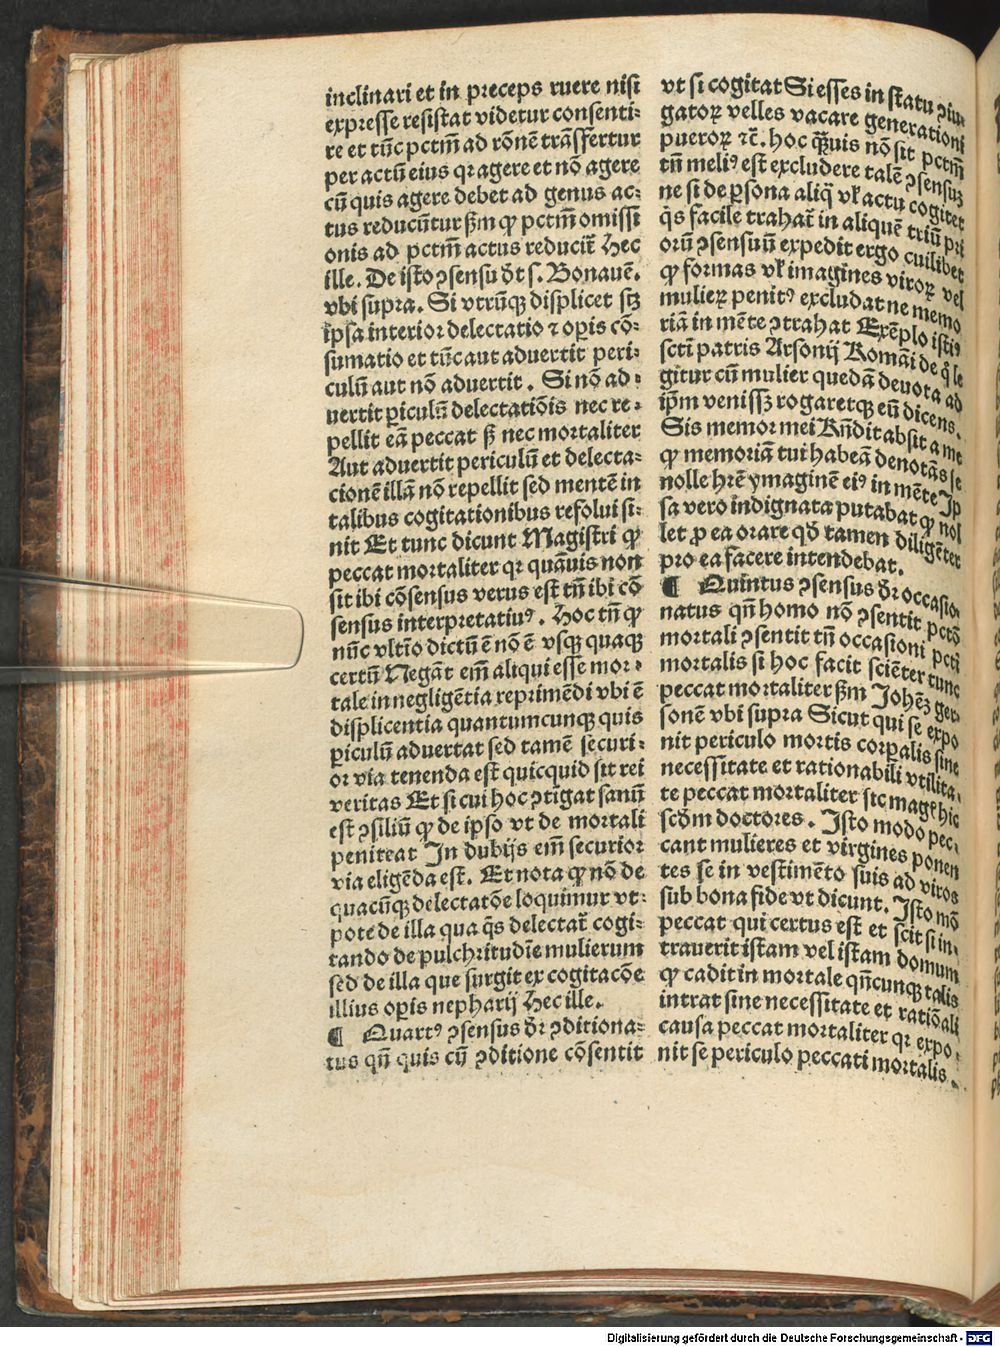 inclinari et in preceps ruere nisi
expresse resistat videtur consenti-
re et tūc pctm̄ ad rōnē trāsfertur
per actū eius qꝛ agere et nō agere
cū quis agere debet ad genus ac-
tus reducūtur ẜm ꝙ pctm̄ omissi
onis ad pctm̄ actus reducit᷑ Hec
ille. De isto ꝯsensu dꝛt s. Bonauē.
vbi supra. Si vtrūqꝫ displicet sꝫ
ipsa interior delectatio ⁊ oꝑis cō-
sumatio et tūc aut aduertit peri-
culū aut nō aduertit. Si nō ad-
uertit ꝑiculū delectatiōis nec re-
pellit eā peccat ẜ nec mortaliter
Aut aduertit periculū et delecta-
cionē illā nō repellit sed mentē in
talibus cogitationibus resolui si-
nit Et tunc dicunt Magistri ꝙ
peccat mortaliter qꝛ quāuis non
sit ibi cōsensus verus est tn̄ ibi cō
sensus interpretatiuꝰ. Hoc tn̄ ꝙ
nūc vltīo dictū ē nō ē vsqꝫ quaqꝫ
certū Negāt em̄ aliqui esse mor-
tale in negligētia reprimēdi vbi ē
displicentia quantumcunqꝫ quis
ꝑiculū aduertat sed tamē securi-
or via tenenda est quicquid sit rei
veritas Et si cui hoc ꝯtigat sanū
est ꝯsiliū ꝙ de ipso vt de mortali
peniteat In dubijs em̄ securior
via eligēda est. Et nota ꝙ nō de
quacūqꝫ delectatōe loquimur vt-
pote de illa qua q̄s delectat᷑ cogi-
tando de pulchritudīe mulierum
sed de illa que surgit ex cogitacōe
illius oꝑis nepharij Hec ille.
¶ Quartꝰ ꝯsensus dr̄ ꝯditiona-
tus qn̄ quis cū ꝯditione cōsentit
vt si cogitat Si esses in statu ꝯiu-
gatoꝝ velles vacare generationi
pueroꝝ ⁊c̄. hoc q̄uis nō sit pctm̄
tn̄ meliꝰ est excludere talē ꝯsensuꝫ
ne si de ꝑsona aliq̄ vl̓ actu cogitet
q̄s facile trahat᷑ in aliquē triū pri
orū ꝯsensuū expedit ergo cuilibet
ꝙ formas vl̓ imagines viroꝝ vel
mulieꝝ penitꝰ excludat ne memo
riā in mēte ꝯtrahat Exēplo istiꝰ
scti̅ patris Arsonij Romāi de q̄ le
gitur cū mulier quedā deuota ad
ip̄m venissꝫ rogaretqꝫ eū dicens.
Sis memor mei Rn̄dit absit a me
ꝙ memoriā tui habeā denotās se
nolle hr̄e ymaginē eiꝰ in mēte Ip
sa vero indignata putabat ꝙ nol
let ꝓ ea orare qd̓ tamen diligēter
pro ea facere intendebat.
¶ Quintus ꝯsensus dr̄ occasio-
natus qn̄ homo nō ꝯsentit pctō
mortali ꝯsentit tn̄ occasioni pcti̅
mortalis si hoc facit sciēter tunc
peccat mortaliter ẜm Johēꝫ ger-
sonē vbi supra Sicut qui se expo
nit periculo mortis corꝑalis sine
necessitate et rationabili vtilita-
te peccat mortaliter sic mage hic
scd̓m doctores. Isto modo pec-
cant mulieres et virgines ponen
tes se in vestimēto suis ad viros
sub bona fide vt dicunt. Isto mō
peccat qui certus est et scit si in-
trauerit istam vel istam domum
ꝙ cadit in mortale qn̄cunqꝫ talis
intrat sine necessitate et ratiōali
causa peccat mortaliter qꝛ expo-
nit se periculo peccati mortalis.
Digitalisierung gefördert durch die Deutsche Forschungsgemeinschaft - DFG